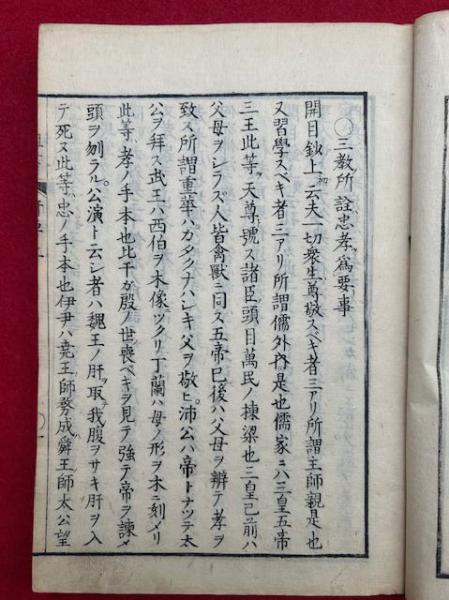 〇三教所詮忠孝ヲ爲要事
開目鈔上云夫一切衆生尊敬スベキ者三アリ所謂主師親是也
又習學スベキ者三アリ所謂儒外內是也儒家ニハ三皇五帝
三王此等ヲ天尊ト號ス諸臣頭目萬民ノ棟梁也三皇已前ハ
父母ヲシラズ人皆禽獸ニ同ス五帝已後ハ父母ヲ辨テ孝ヲ
致ス所謂重華ハカタクナハシキ父ヲ敬ヒ沛公ハ帝トナツテ太
公ヲ拜ス武王ハ西伯ヲ木像ニツクリ丁蘭ハ母ノ形ヲ木ニ刻メリ
此等ハ孝ノ手本也比干ガ殷ノ世喪ベキヲ見テ強テ帝ヲ諫メ
頭ヲ刎ラル公演ト云シ者ハ魏王ノ肝ヲ取我腹ヲサキ肝ヲ入
テ死ス此等ハ忠ノ手本也伊尹ハ堯王師務成ハ舜王師太公望